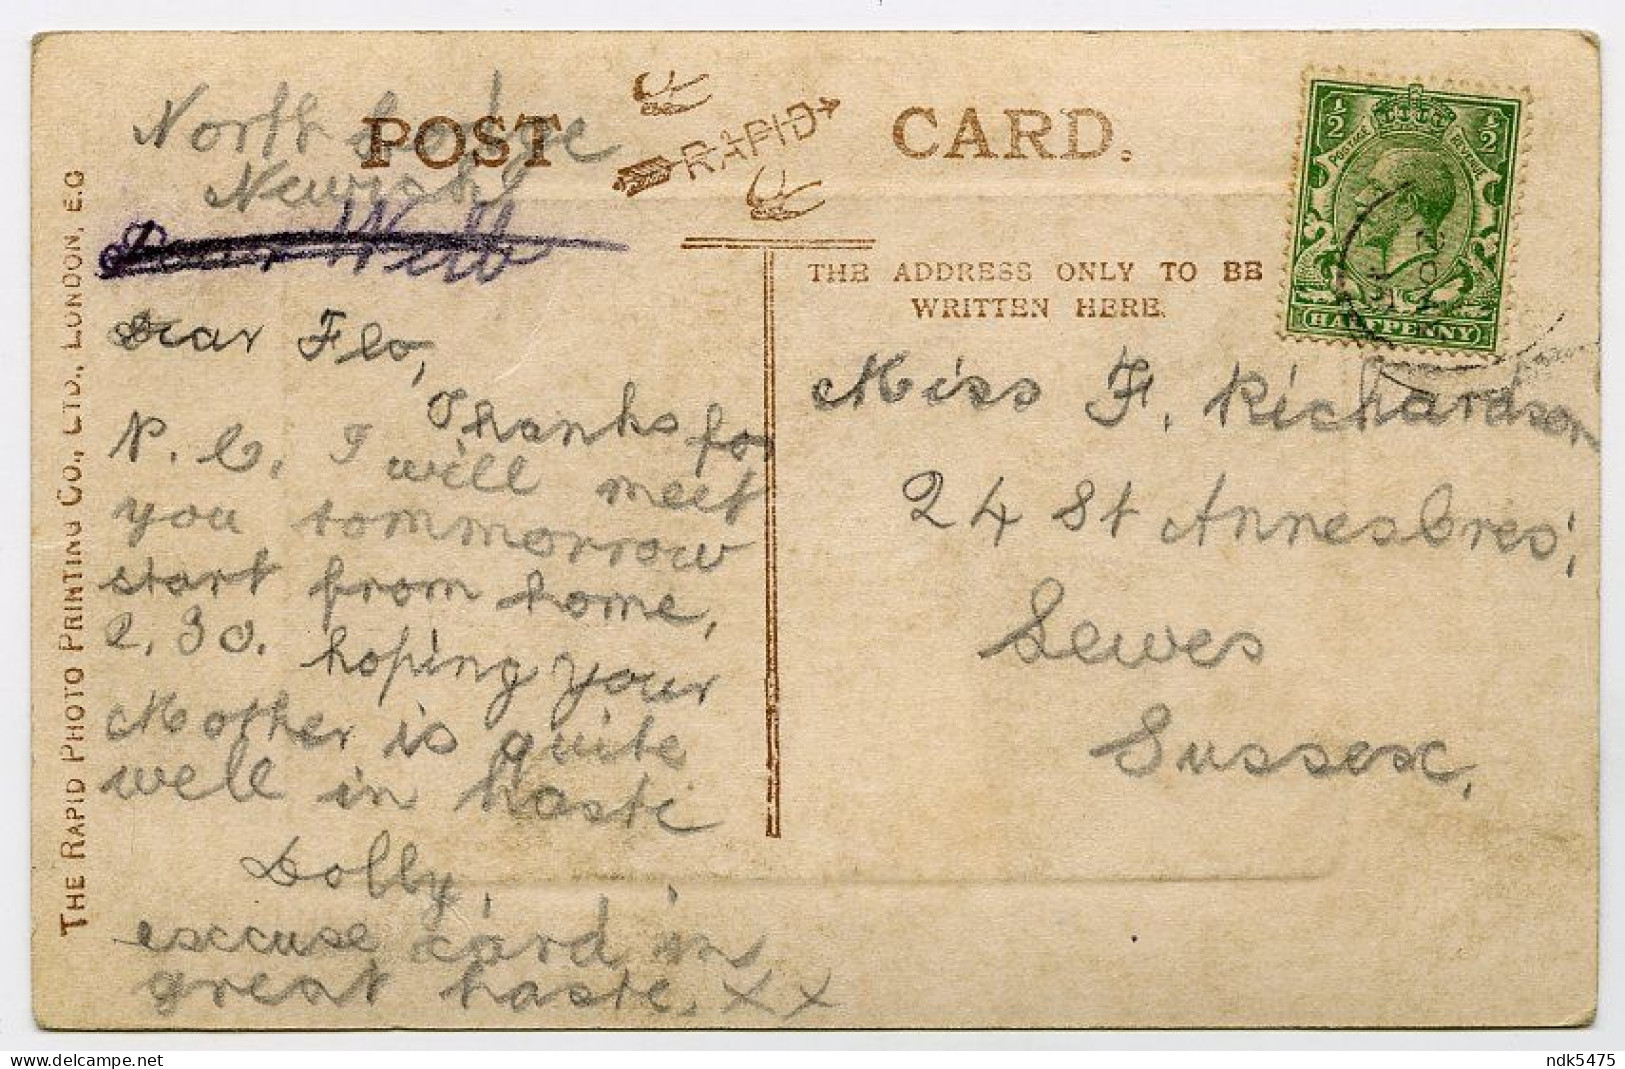 POST CARD.
RAPID
North Lodge
Newick
Dear Webb
Dear Flo,
Thanks for
P. C. I will meet
you tommorrow
start from home,
2,30. hoping your
Mother is quite
well in haste
Dolly,
exccuse card in
great haste, X X
THE RAPID PHOTO PRINTING CO., LTD., LONDON, E.C
THE ADDRESS ONLY TO BE
WRITTEN HERE.
½ ½
POSTAGE REVENUE
HALFPENNY
Miss F. Richardson
24 St Annes Cres;
Lewes
Sussex,
ndk5475